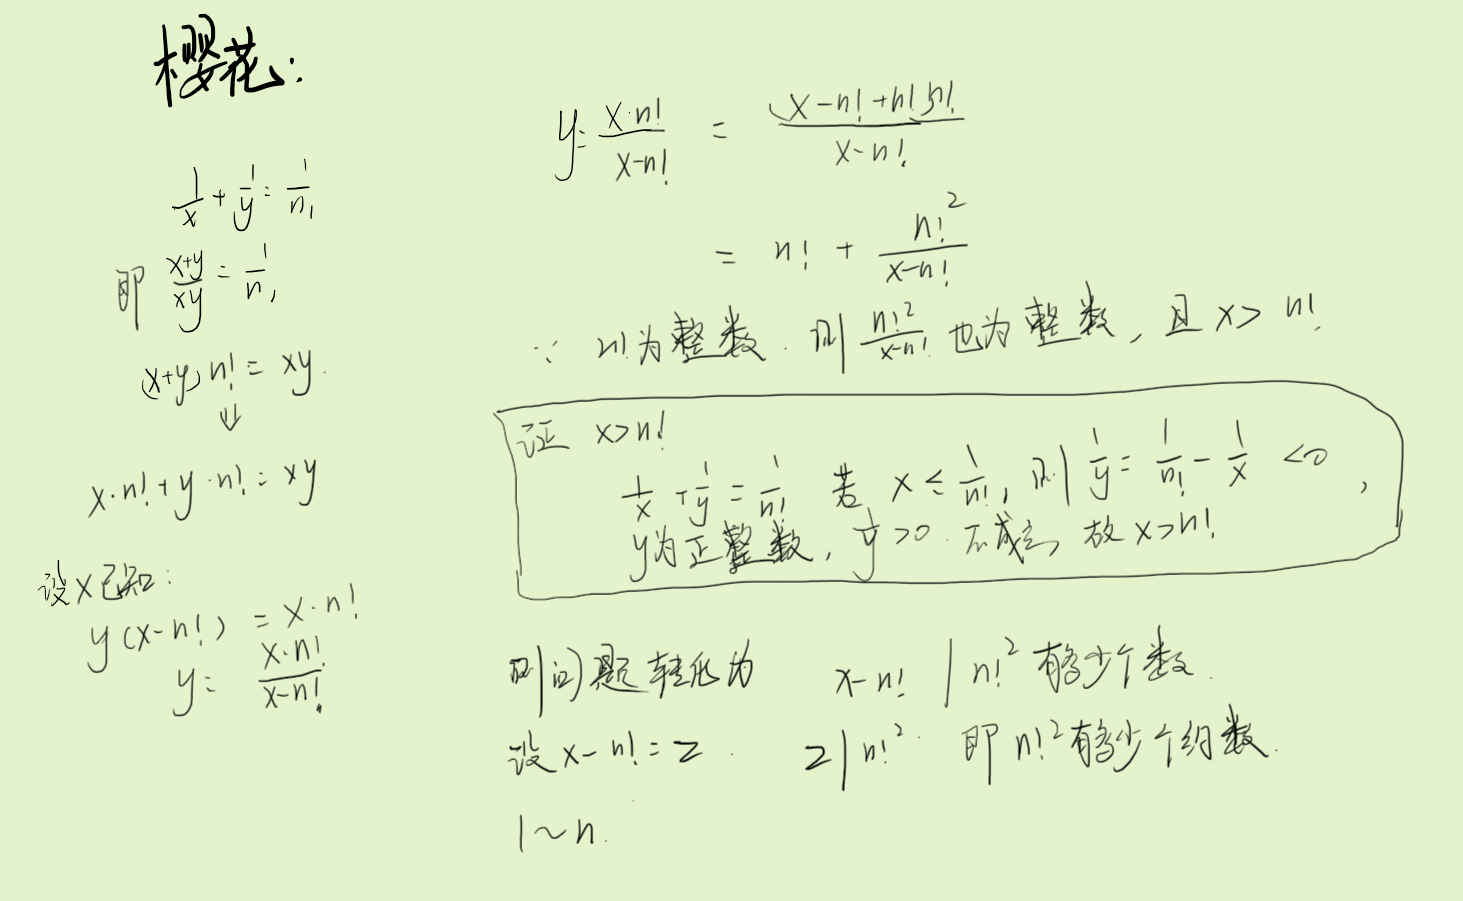 樱花:
1/x + 1/y = 1/n!
即 (x+y)/(xy) = 1/n!
(x+y) n! = xy.
⇓
x·n! + y·n! = xy
设x已知:
y(x-n!) = x·n!
y = (x·n!)/(x-n!)
y = (x·n!)/(x-n!) = ((x-n!+n!)n!)/(x-n!)
= n! + n!²/(x-n!)
∵ n!为整数. 则 n!²/(x-n!) 也为整数, 且 x > n!
证 x>n!
1/x + 1/y = 1/n! 若 x ≤ 1/n!, 则 1/y = 1/n! - 1/x <0,
y为正整数, 1/y >0. 不成立, 故 x>n!
则问题转化为 x-n! | n!² 有多少个数.
设 x-n! = z. z|n!². 即 n!² 有多少个约数.
1~n.